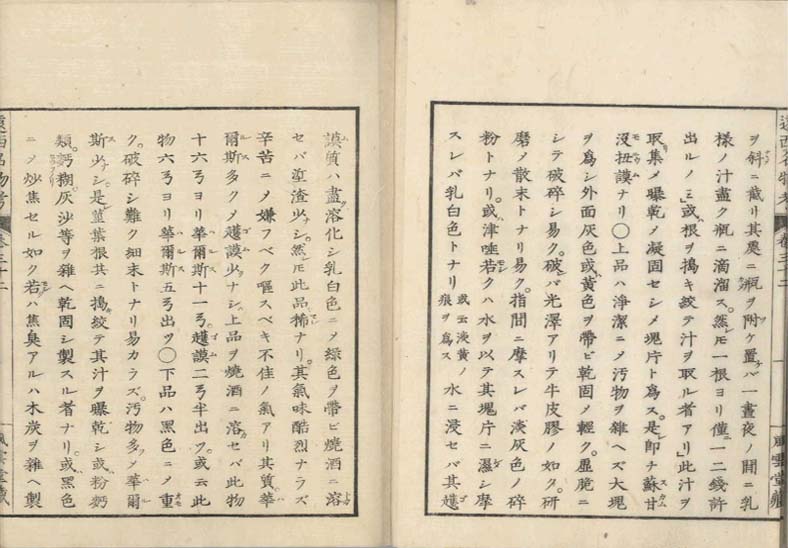 ヲ斜ニ截リ其処ニ瓶ヲ附ケ置ケバ一晝夜ノ間ニ乳
様ノ汁盡ク瓶ニ滴溜ス。然レモ一根ヨリ僅ニ一二錢許
出ルノミ」或ハ根ヲ搗キ絞テ汁ヲ取ル者アリ」此汁ヲ
取集メ曝乾メ凝固セシメ塊片ト爲ス。是即チ蘇甘
没扭謨ナリ〇上品ハ浄潔ニメ汚物ヲ雜ヘズ大塊
ヲ爲シ外面灰色或ハ黄色ヲ帶ビ乾固メ輕ク。虚脆ニ
シテ破碎シ易ク。破レバ光澤アリテ牛皮膠ノ如ク。研
磨メ散末トナリ易ク。指間ニ摩スレバ淡灰色ノ碎
粉トナリ。或ハ津唾若クハ水ヲ以テ其塊片ニ灑シ摩
スレバ乳白色トナリ 或云淡黄ノ痕ヲ爲ス 水ニ浸セバ其護
謨質ハ盡ク溶化シ乳白色ニメ綠色ヲ帶ビ燒酒ニ溶
セバ渣少ナシ。然レモ此品稀ナリ。其氣味酷烈ナラズ
辛苦ニメ嫌フベク嘔スベキ不佳ノ氣アリ其質華
爾斯多クメ護謨少ナシ」上品ヲ燒酒ニ溶セバ此物
十六弓ヨリ華爾斯十一弓。護謨二弓半出ツ。或云此
物六弓ヨリ華爾斯五弓出ツ〇下品ハ黑色ニメ重
ク。破碎シ難ク細末トナリ易カラズ。汚物多ク華爾
斯少ナシ。是莖葉根共ニ搗絞テ其汁ヲ曝乾シ或ハ粉
類。糊灰沙等ヲ雜ヘ乾固シ製スル者ナリ。或ハ黑色
ニメ炒焦セル如ク若クハ焦臭アルハ木炭ヲ雜ヘ製
遠西名物考 卷三十二 風雲堂藏